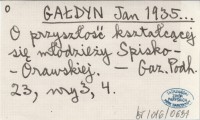 o
GAŁDYN Jan 1935...
O przyszłość kształcącej
się młodzieży Spisko-
-Orawskiej. — Gaz. Podh.
23, nry 3, 4.